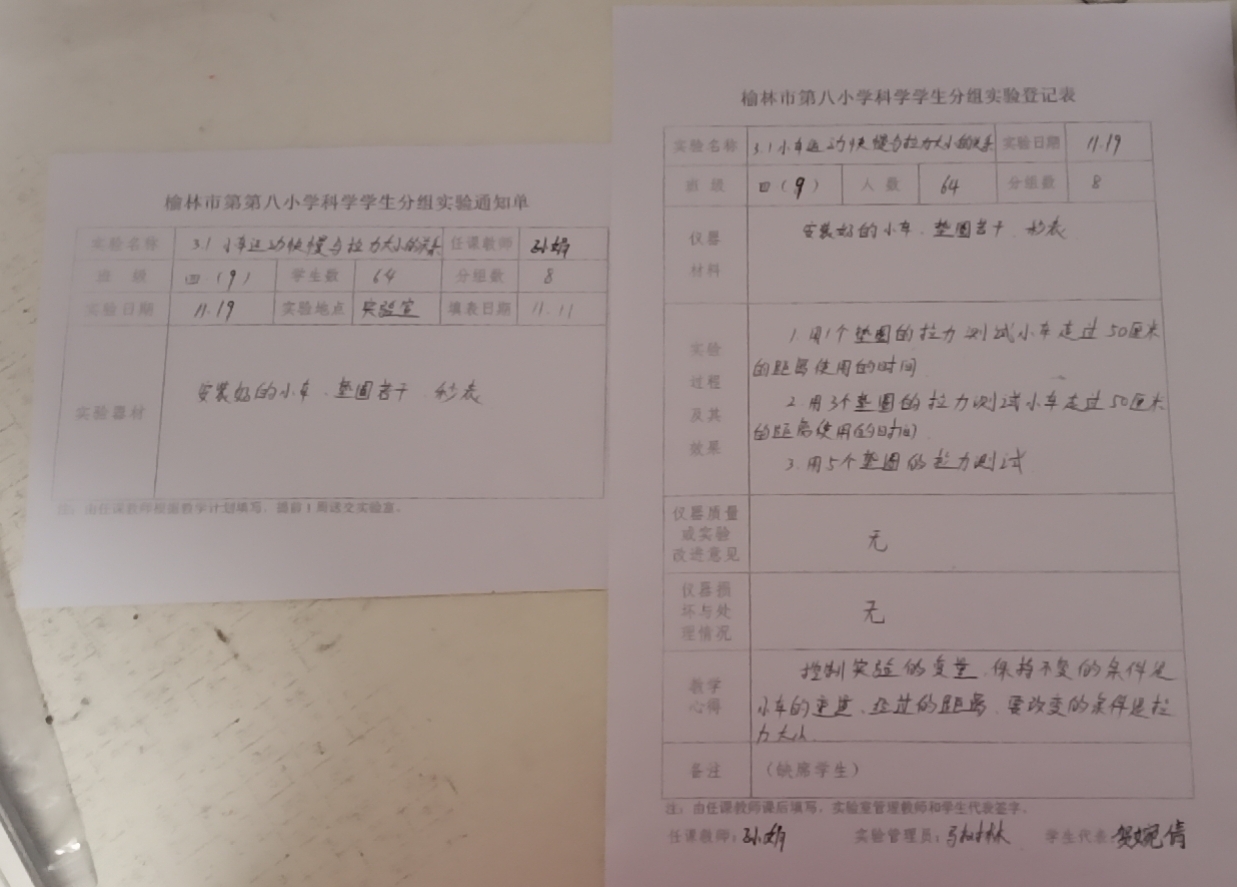 榆林市第第八小学科学学生分组实验通知单
实验名称 3.1 小车运动快慢与拉力大小的关系 任课教师 孙娟
班 级 四（9） 学生数 64 分组数 8
实验日期 11.19 实验地点 实验室 填表日期 11.11
实验器材 安装好的小车、垫圈若干、秒表
注：由任课教师根据教学计划填写，提前1周送交实验室。
榆林市第八小学科学学生分组实验登记表
实验名称 3.1小车运动快慢与拉力大小的关系 实验日期 11.19
班 级 四（9） 人 数 64 分组数 8
仪器
材料
安装好的小车、垫圈若干、秒表
实验
过程
及其
效果
1.用1个垫圈的拉力测试小车走过50厘米
的距离使用的时间
2.用3个垫圈的拉力测试小车走过50厘米
的距离使用的时间
3.用5个垫圈的拉力测试
仪器质量
或实验
改进意见
无
仪器损
坏与处
理情况
无
教学
心得
控制实验的变量，保持不变的条件是
小车的重量、经过的距离、要改变的条件是拉
力大小
备注 （缺席学生）
注：由任课教师课后填写，实验室管理教师和学生代表签字。
任课教师：孙娟 实验管理员：马树林 学生代表：贺婉倩